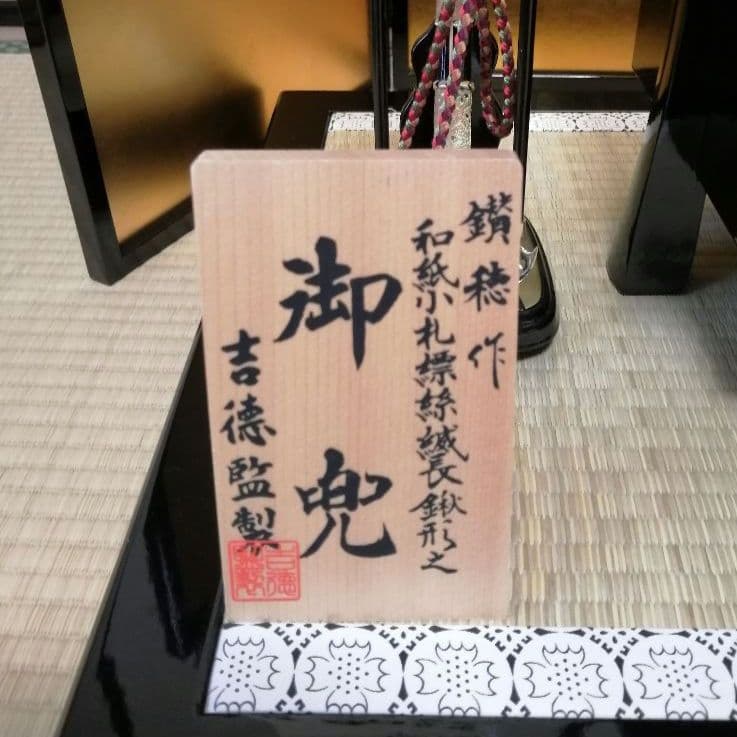 鑚穂作
和紙小札縹絲縅長鍬形之
御兜
吉德監製
吉德